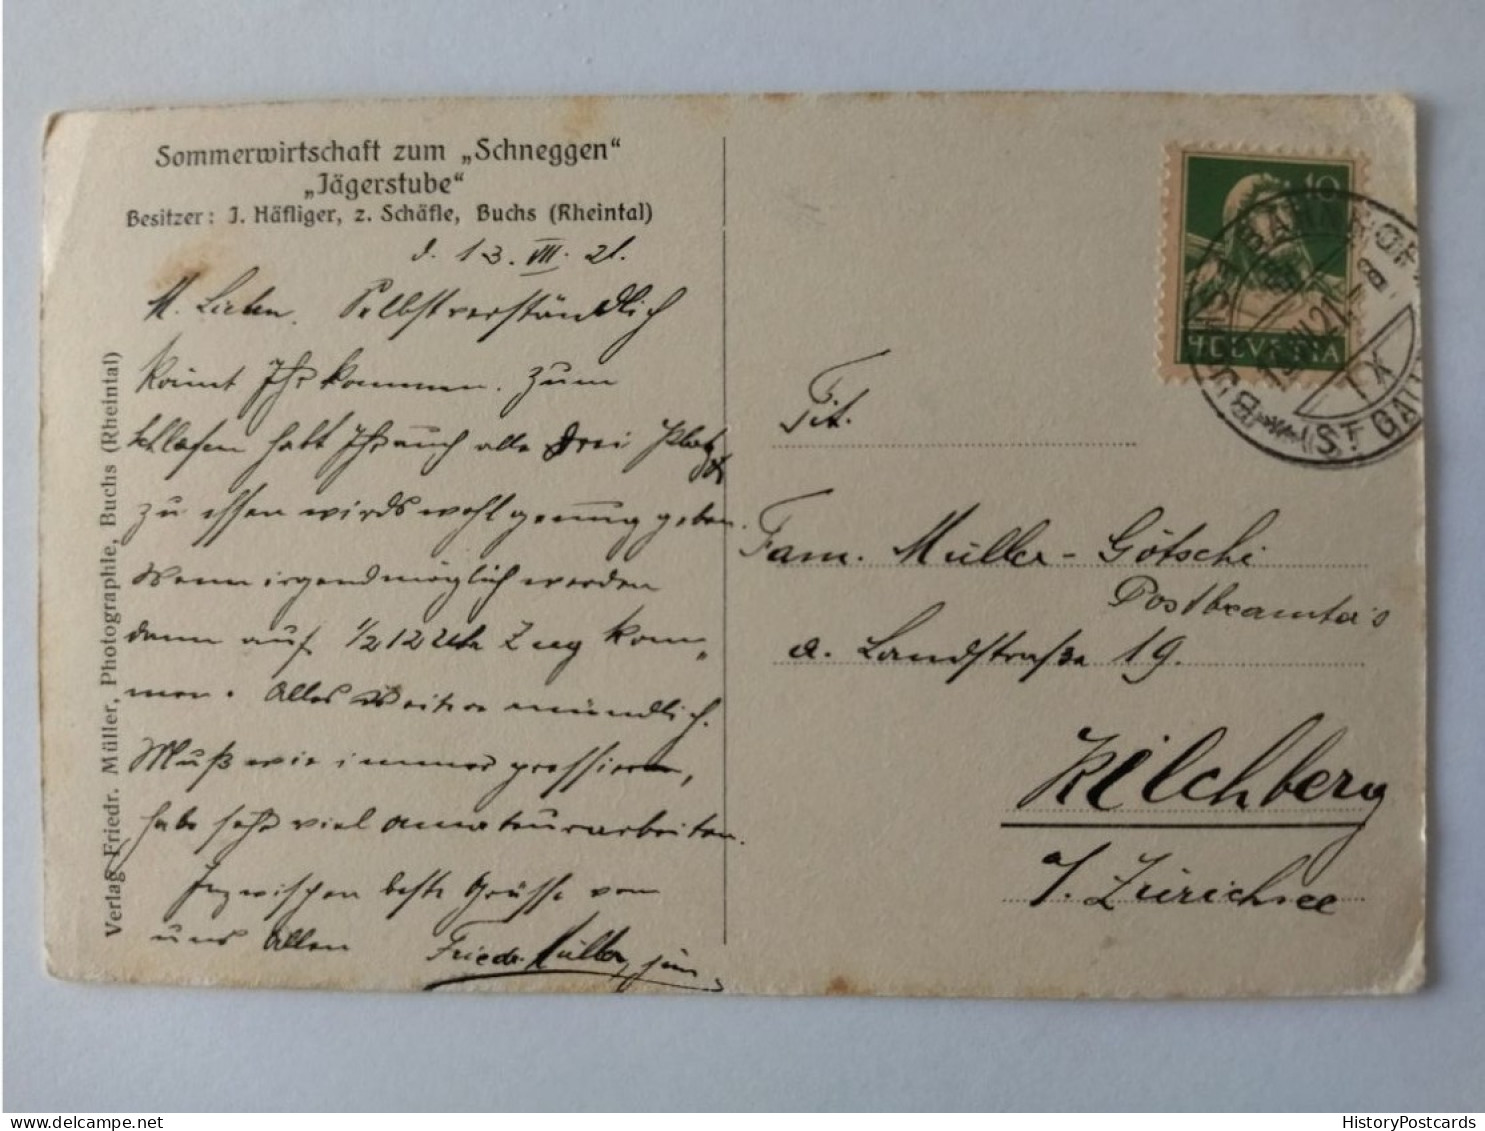 Sommerwirtschaft zum „Schneggen“
„Jägerstube“
Besitzer: J. Häfliger, z. Schäfle, Buchs (Rheintal)
d. 13. VII. 21.
M. Lieben. Selbstverständlich
könnt Ihr kommen. Zum
schlafen habt Ihr auch alle drei Platz
zu essen wirds wohl genug geben.
Wenn irgendmöglich werden
dann auf 1/2 12 Uhr Zug kom-
men. Alles Weitere mündlich.
Muß wie immer pressieren,
habe sehr viel Amateurarbeiten.
Inzwischen beste Grüsse von
uns Allen Friedr. Müller, jun.
Verlag Friedr. Müller, Photographie, Buchs (Rheintal)
10
HELVETIA
BAHNHOF
VII.21.-8
IX
(ST. GALL
Tit.
Fam. Müller-Götschi
Postbeamter's
a. Landstraße 19.
Kilchberg
a/. Zürichsee
HistoryPostcards
delcampe.net
HistoryPostcards.com